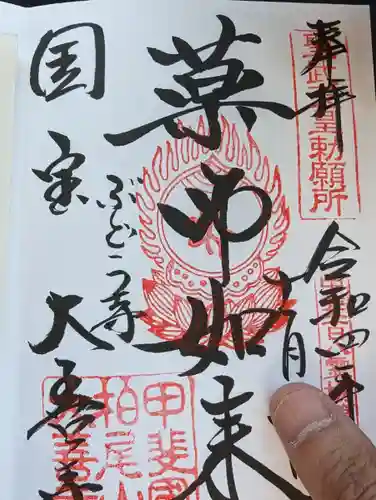 奉拝
聖武天皇勅願所
令和四年
十一月
薬師如来
ぶどう寺
国宝
大善寺
甲斐國
柏尾山
大善寺